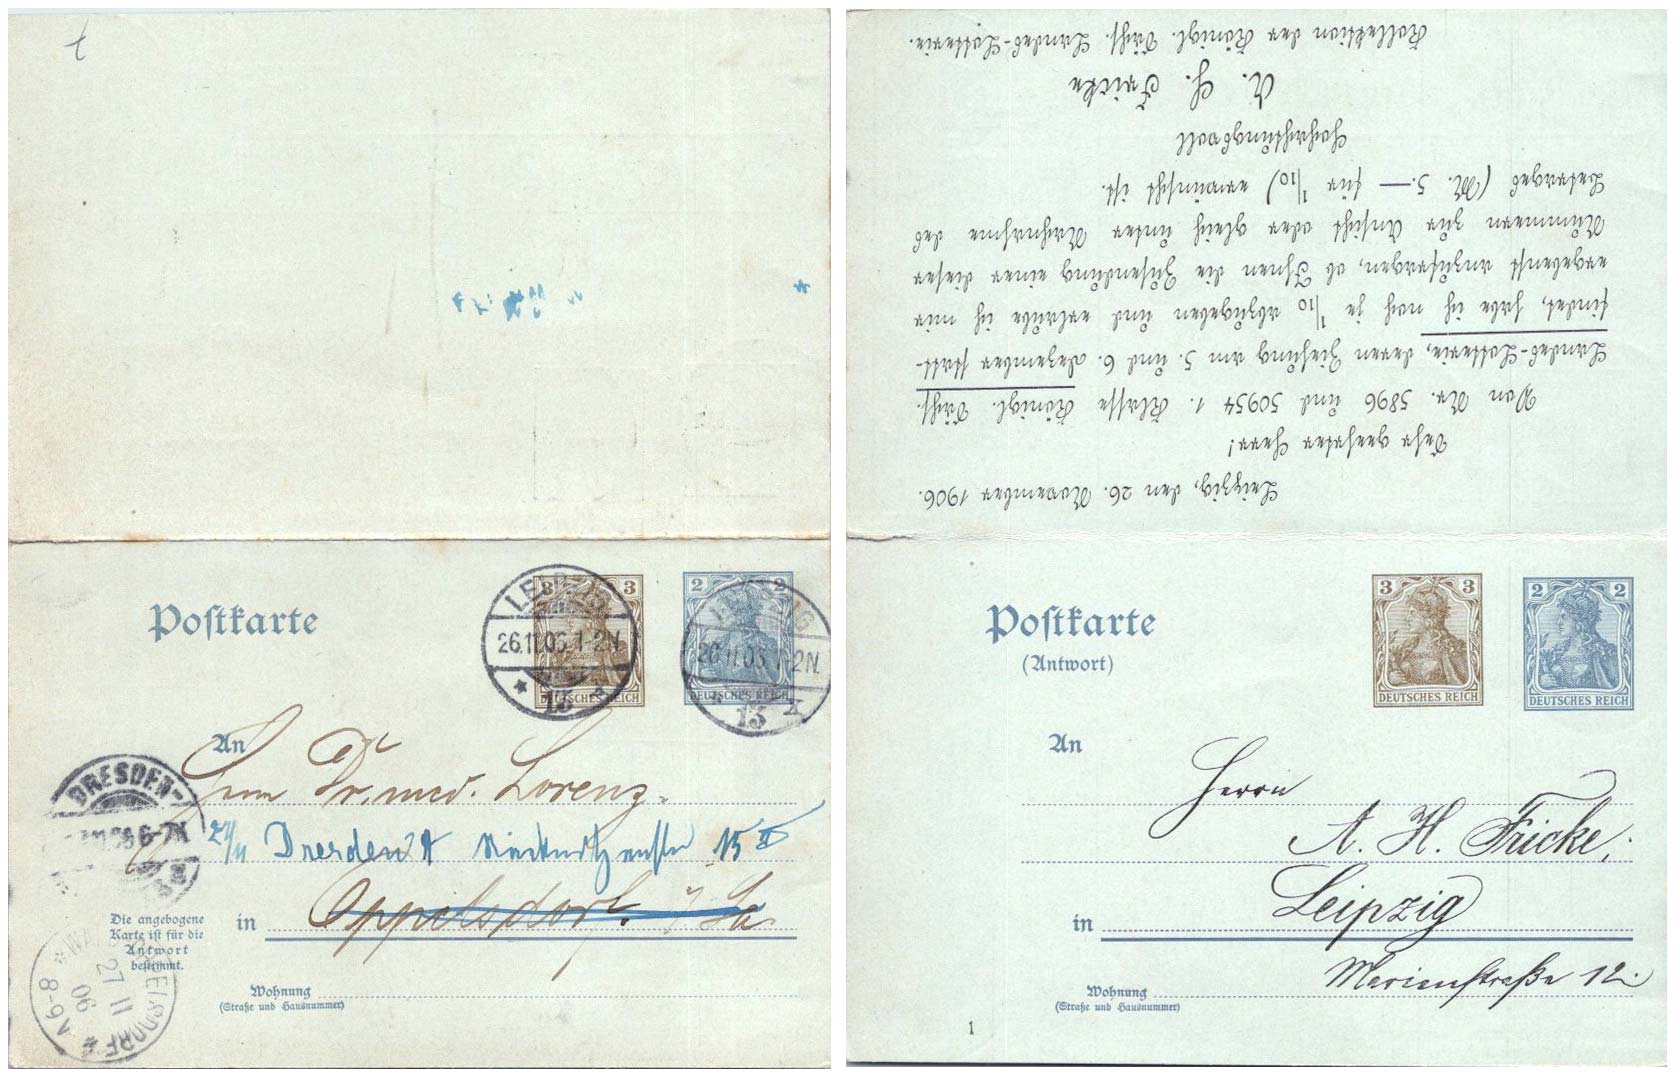 Postkarte
3 3
DEUTSCHES REICH
2 2
DEUTSCHES REICH
LEIPZIG
26.11.06.1-2N.
13
LEIPZIG
26.11.06.1-2N.
13
An
Herrn Dr. med. Lorenz.
DRESDEN-
6-7N
27/11 Dresden A 15 II
in Oppelsdorf i/Sa.
Die angebogene
Karte ist für die
Antwort
bestimmt.
27 11
06
8-9V
Wohnung
(Straße und Hausnummer)
Leipzig, den 26. November 1906.
Sehr geehrter Herr!
Von Nr. 5896 und 50954 1. Klasse Königl. Sächs.
Landes-Lotterie, deren Ziehung am 5. und 6. Dezember statt-
findet, habe ich noch je 1/10 abzugeben und erlaube ich mir
ergebenst anzufragen, ob Ihnen die Zusendung einer dieser
Nummern zur Ansicht oder gleich unter Nachnahme des
Betrages (M. 5.— für 1/10) erwünscht ist.
Hochachtungsvoll
A. H. Fricke
Kollektion der Königl. Sächs. Landes-Lotterie.
Postkarte
(Antwort)
3 3
DEUTSCHES REICH
2 2
DEUTSCHES REICH
An
Herrn
A. H. Fricke,
in Leipzig
Marienstraße 12.
Wohnung
(Straße und Hausnummer)
1